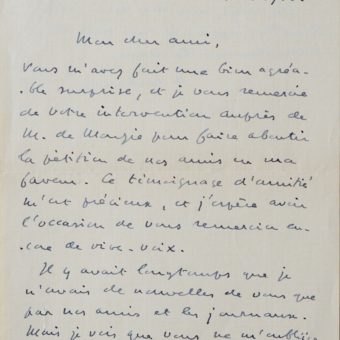 Mon cher ami,
Vous m'avez fait une bien agréa-
-ble surprise, et je vous remercie
de votre intervention auprès de
M. de Monzie pour faire aboutir
la pétition de nos amis en ma
faveur. Ce témoignage d'amitié
m'est précieux, et j'espère avoir
l'occasion de vous remercier en-
-core de vive-voix.
Il y avait longtemps que je
n'avais de nouvelles de vous que
par nos amis et les journaux.
Mais je vois que vous ne m'oubliez